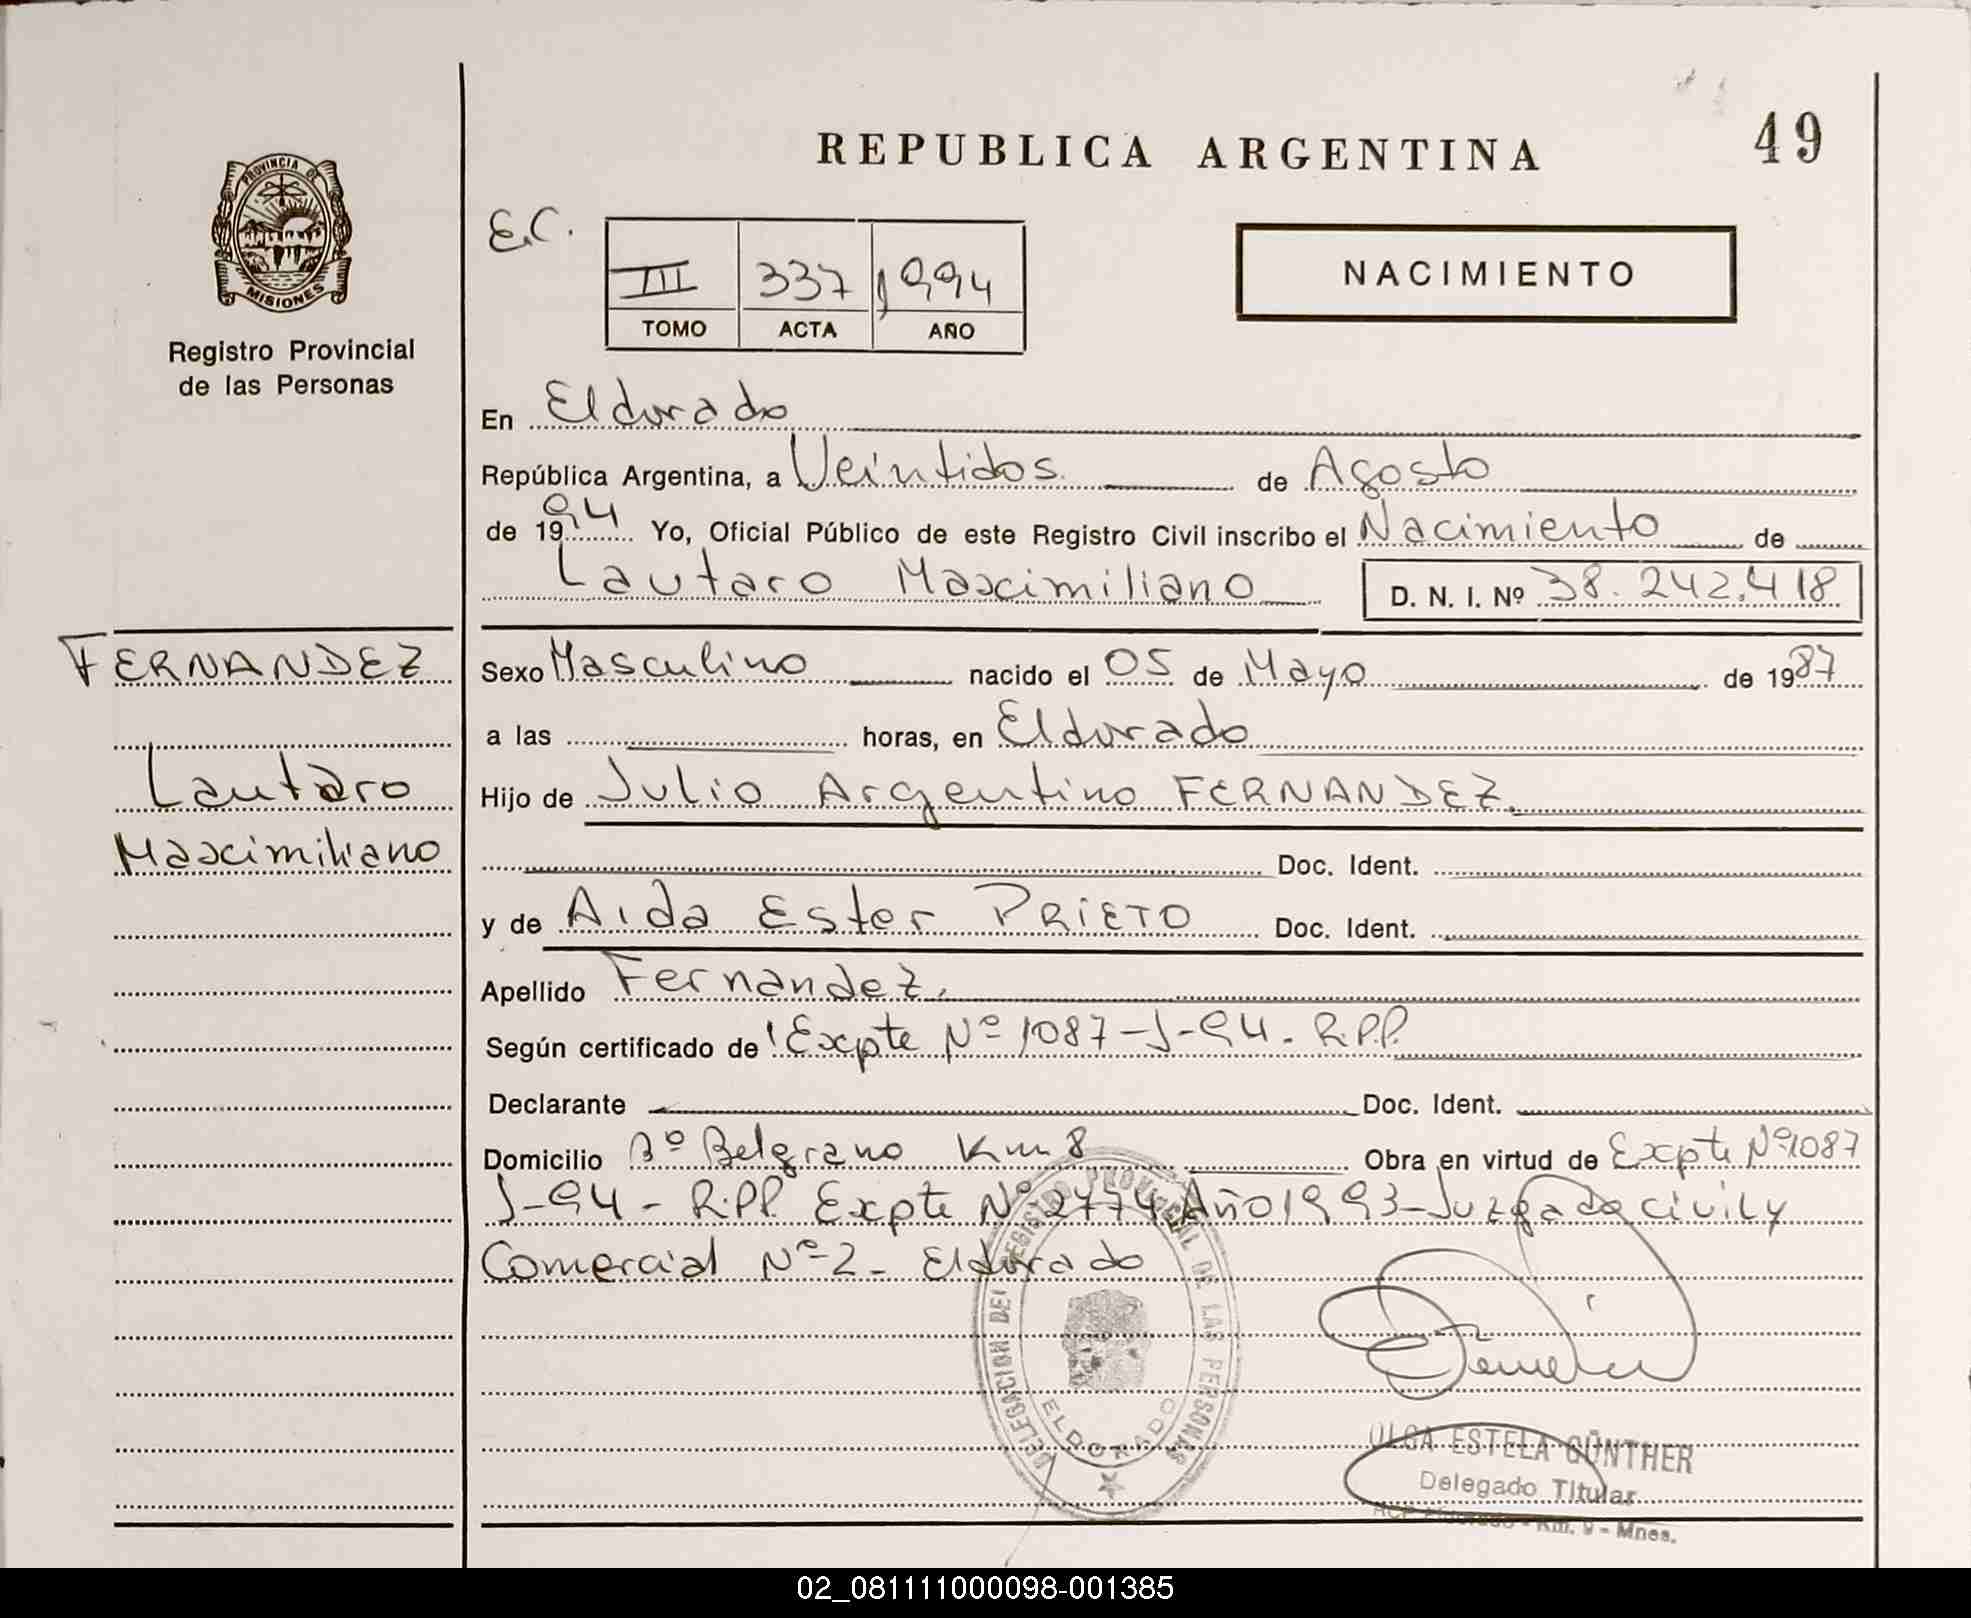 49
REPUBLICA ARGENTINA
PROVINCIA DE
MISIONES
Registro Provincial
de las Personas
E.C.
III 337 1994
TOMO ACTA AÑO
NACIMIENTO
En Eldorado
República Argentina, a Veintidos de Agosto
de 1994 Yo, Oficial Público de este Registro Civil inscribo el Nacimiento de
Lautaro Maximiliano D. N. I. Nº 38.242.418
FERNANDEZ
Lautaro
Maximiliano
Sexo Masculino nacido el 05 de Mayo de 1987
a las horas, en Eldorado
Hijo de Julio Argentino FERNANDEZ.
Doc. Ident.
y de Aida Ester PRIETO Doc. Ident.
Apellido Fernandez.
Según certificado de Expte Nº 1087-J-94. R.P.P.
Declarante Doc. Ident.
Domicilio Bº Belgrano Km 8 Obra en virtud de Expte Nº1087
J-94- R.P.P. Expte Nº 2774 Año 1993-Juzgado civil y
Comercial Nº 2- Eldorado
DELEGACION DEL REGISTRO PROVINCIAL DE LAS PERSONAS
ELDORADO
OLGA ESTELA GÜNTHER
Delegado Titular
Km. 9 - Mnes.
02_081111000098-001385